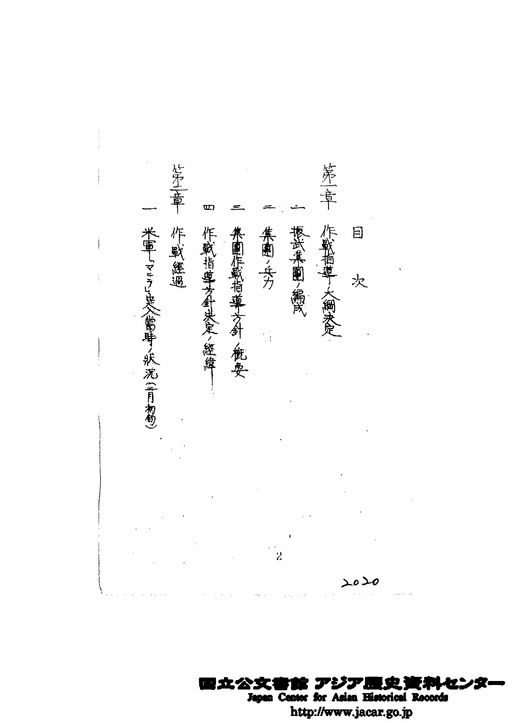 目次
第一章 作戦指導ノ大綱決定
一 振武集團ノ編成
二 集團ノ兵力
三 集團作戦指導方針ノ概要
四 作戦指導方針決定ノ經緯
第二章 作戦經過
一 米軍「マニラ」突入當時ノ狀況(二月初旬)
2
2020
国立公文書館 アジア歴史資料センター
Japan Center for Asian Historical Records
http://www.jacar.go.jp